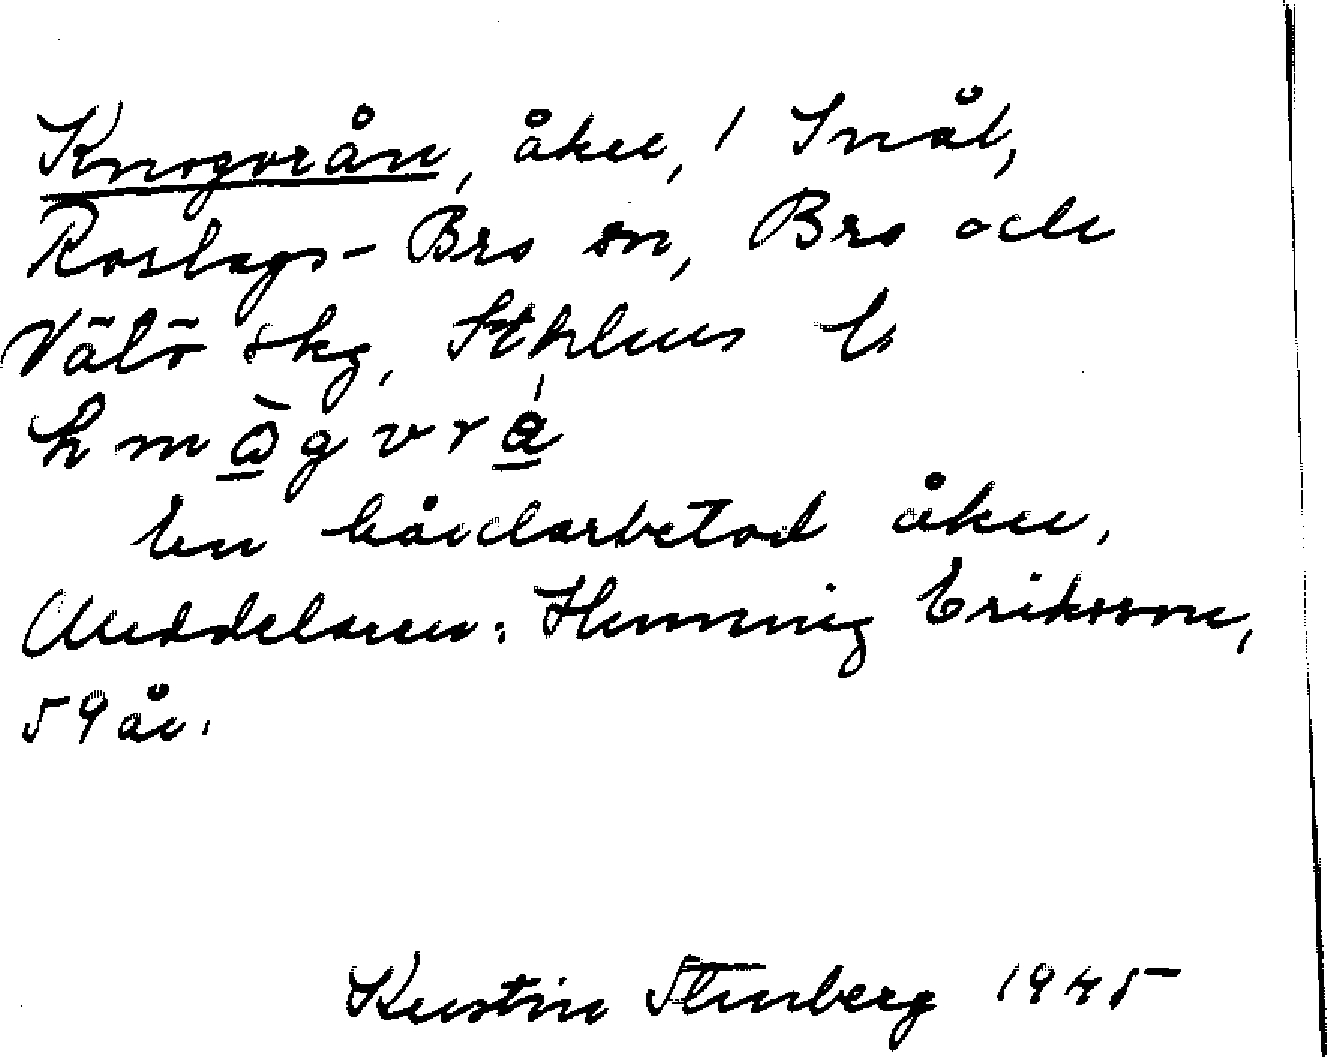 Knogvrån, åker, i Snåt,
Roslags-Bro sn, Bro och
Vätö skg, Sthlms l.
En hårdarbetad åker.
Meddelaren: Henning Eriksson,
59 år.
Kerstin Stenberg 1945